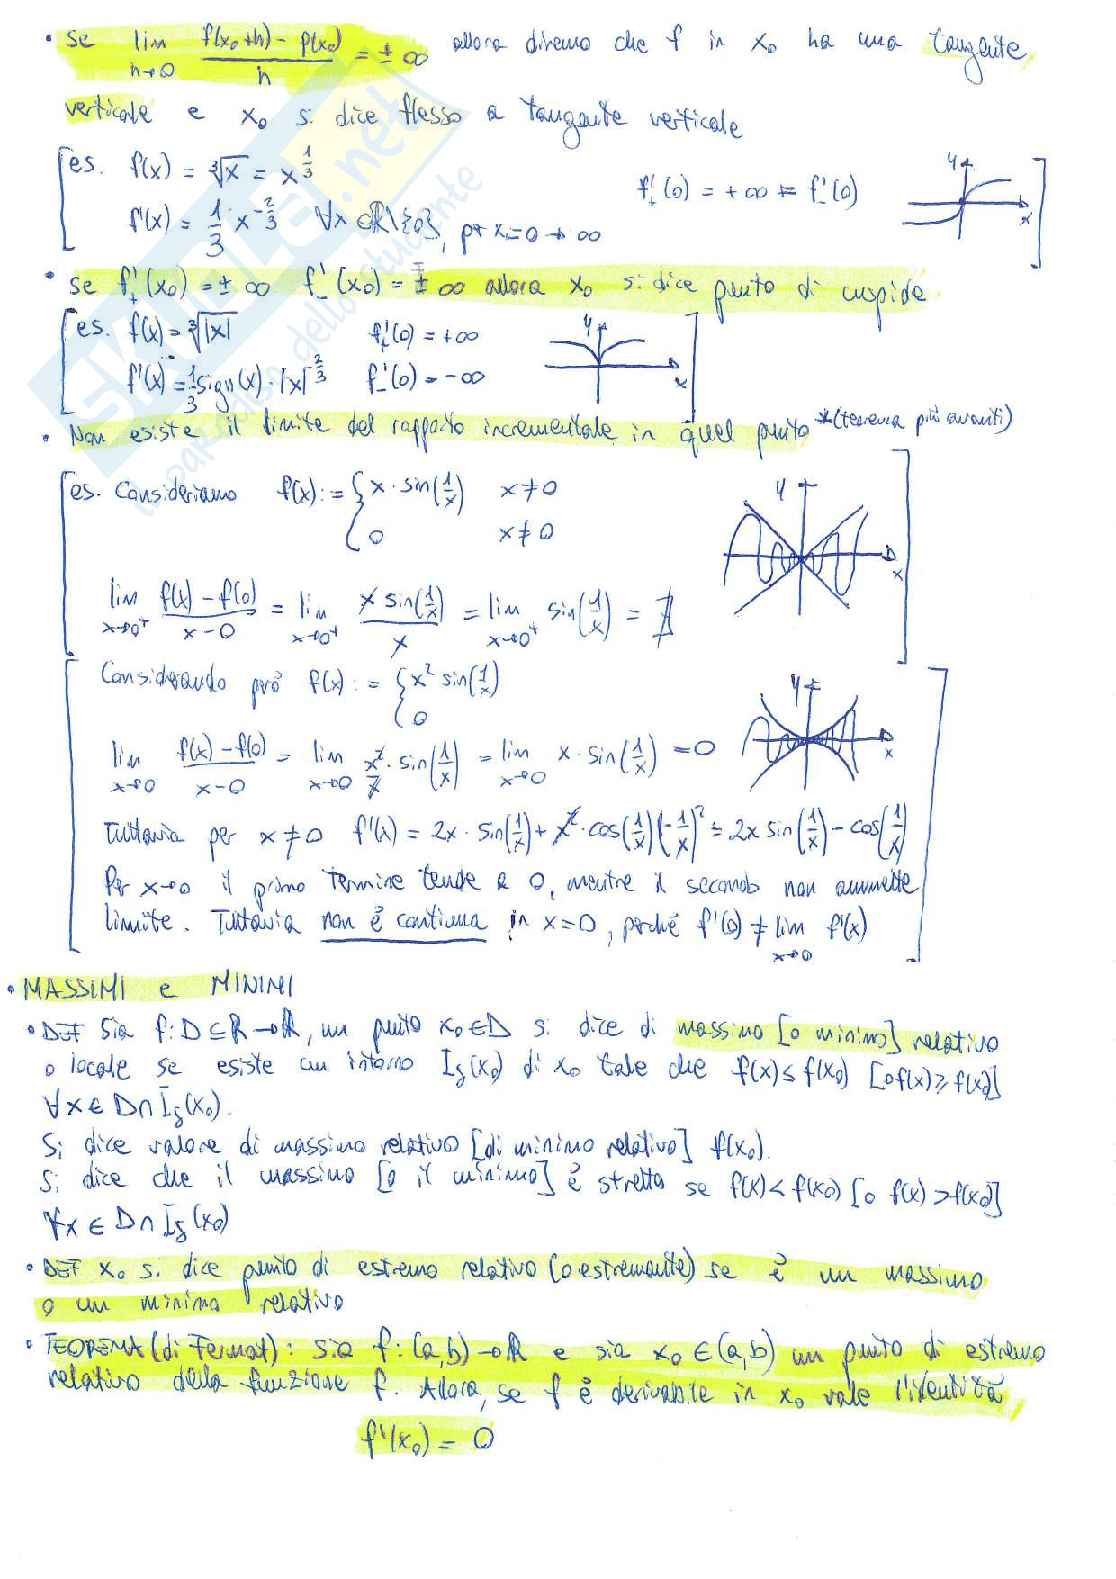 • Se lim h→0 (f(x₀+h) - f(x₀))/h = ± ∞ allora diremo che f in x₀ ha una tangente
verticale e x₀ si dice flesso a tangente verticale
[es. f(x) = ∛x = x^(1/3)
f'₊(0) = +∞ = f'₋(0)
y
x
f'(x) = 1/3 x^(-2/3) ∀x ∈ ℝ\{0}, per x=0 → ∞
• Se f'₊(x₀) = ± ∞ f'₋(x₀) = ∓ ∞ allora x₀ si dice punto di cuspide
[es. f(x) = ∛|x| f'₊(0) = +∞
y
x
f'(x) = 1/3 sign(x)·|x|^(-2/3) f'₋(0) = -∞
• Non esiste il limite del rapporto incrementale in quel punto *(teorema più avanti)
[es. Consideriamo f(x) := { x·sin(1/x) x≠0
0 x≠0
y
x
lim x→0⁺ (f(x) - f(0))/(x-0) = lim x→0⁺ (x sin(1/x))/x = lim x→0⁺ sin(1/x) = ∄
[Considerando però f(x) := { x² sin(1/x)
0
y
x
lim x→0 (f(x) - f(0))/(x-0) = lim x→0 x²/x · sin(1/x) = lim x→0 x·sin(1/x) = 0
Tuttavia per x≠0 f'(x) = 2x·sin(1/x) + x²·cos(1/x)(-1/x)² = 2x sin(1/x) - cos(1/x)
Per x→0 il primo termine tende a 0, mentre il secondo non ammette
limite. Tuttavia non è continua in x=0, perché f'(0) ≠ lim x→0 f'(x)
• MASSIMI e MINIMI
• DEF Sia f: D⊆ℝ→ℝ, un punto x₀∈D si dice di massimo [o minimo] relativo
o locale se esiste un intorno I_δ(x₀) di x₀ tale che f(x) ≤ f(x₀) [o f(x) ≥ f(x₀)]
∀x ∈ D∩I_δ(x₀).
Si dice valore di massimo relativo [di minimo relativo] f(x₀).
Si dice che il massimo [o il minimo] è stretto se f(x) < f(x₀) [o f(x) > f(x₀)]
∀x ∈ D∩I_δ(x₀)
• DEF x₀ si dice punto di estremo relativo (o estremante) se è un massimo
o un minimo relativo
• TEOREMA (di Fermat): sia f: (a,b)→ℝ e sia x₀ ∈ (a,b) un punto di estremo
relativo della funzione f. Allora, se f è derivabile in x₀ vale l'identità
f'(x₀) = 0